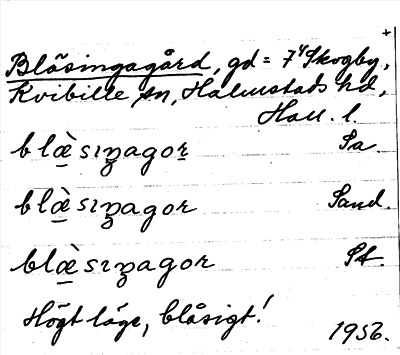 +
Blåsingagård, gd = 7⁴ Skogby,
Kvibille sn, Halmstads hd,
Hall. l.
blæ̀sıȥagor Sa.
blæ̀sıȥagor Sand.
blæ̀sıȥagor St.
Högt läge, blåsigt!
1956.